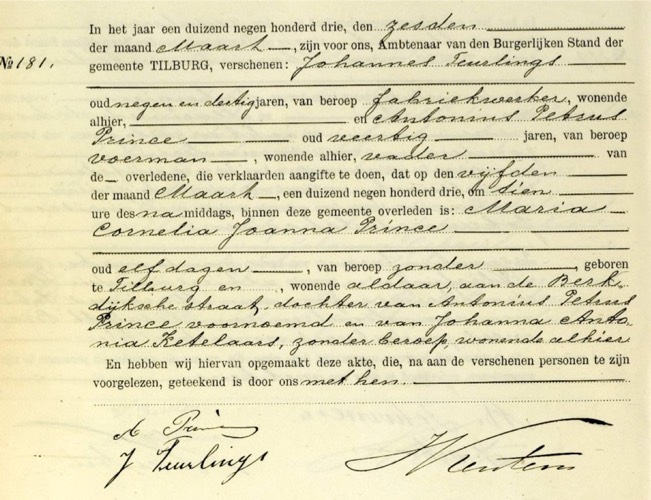 In het jaar een duizend negen honderd drie, den zesden
der maand Maart, zijn voor ons, Ambtenaar van den Burgerlijken Stand der
No 181. gemeente TILBURG, verschenen: Johannes Teurlings
oud negen en dertig jaren, van beroep fabriekwerker, wonende
alhier, en Antonius Petrus
Prince oud veertig jaren, van beroep
voerman, wonende alhier, vader van
de overledene, die verklaarden aangifte te doen, dat op den vijfden
der maand Maart, een duizend negen honderd drie, om tien
ure des na middags, binnen deze gemeente overleden is: Maria
Cornelia Joanna Prince
oud elf dagen, van beroep zonder, geboren
te Tilburg en, wonende aldaar, aan de Berk
dijksche straat, dochter van Antonius Petrus
Prince voornoemd en van Johanna Anto-
nia Ketelaars, zonder beroep, wonende alhier
En hebben wij hiervan opgemaakt deze akte, die, na aan de verschenen personen te zijn
voorgelezen, geteekend is door ons met hen.
A Prince
J Teurlings